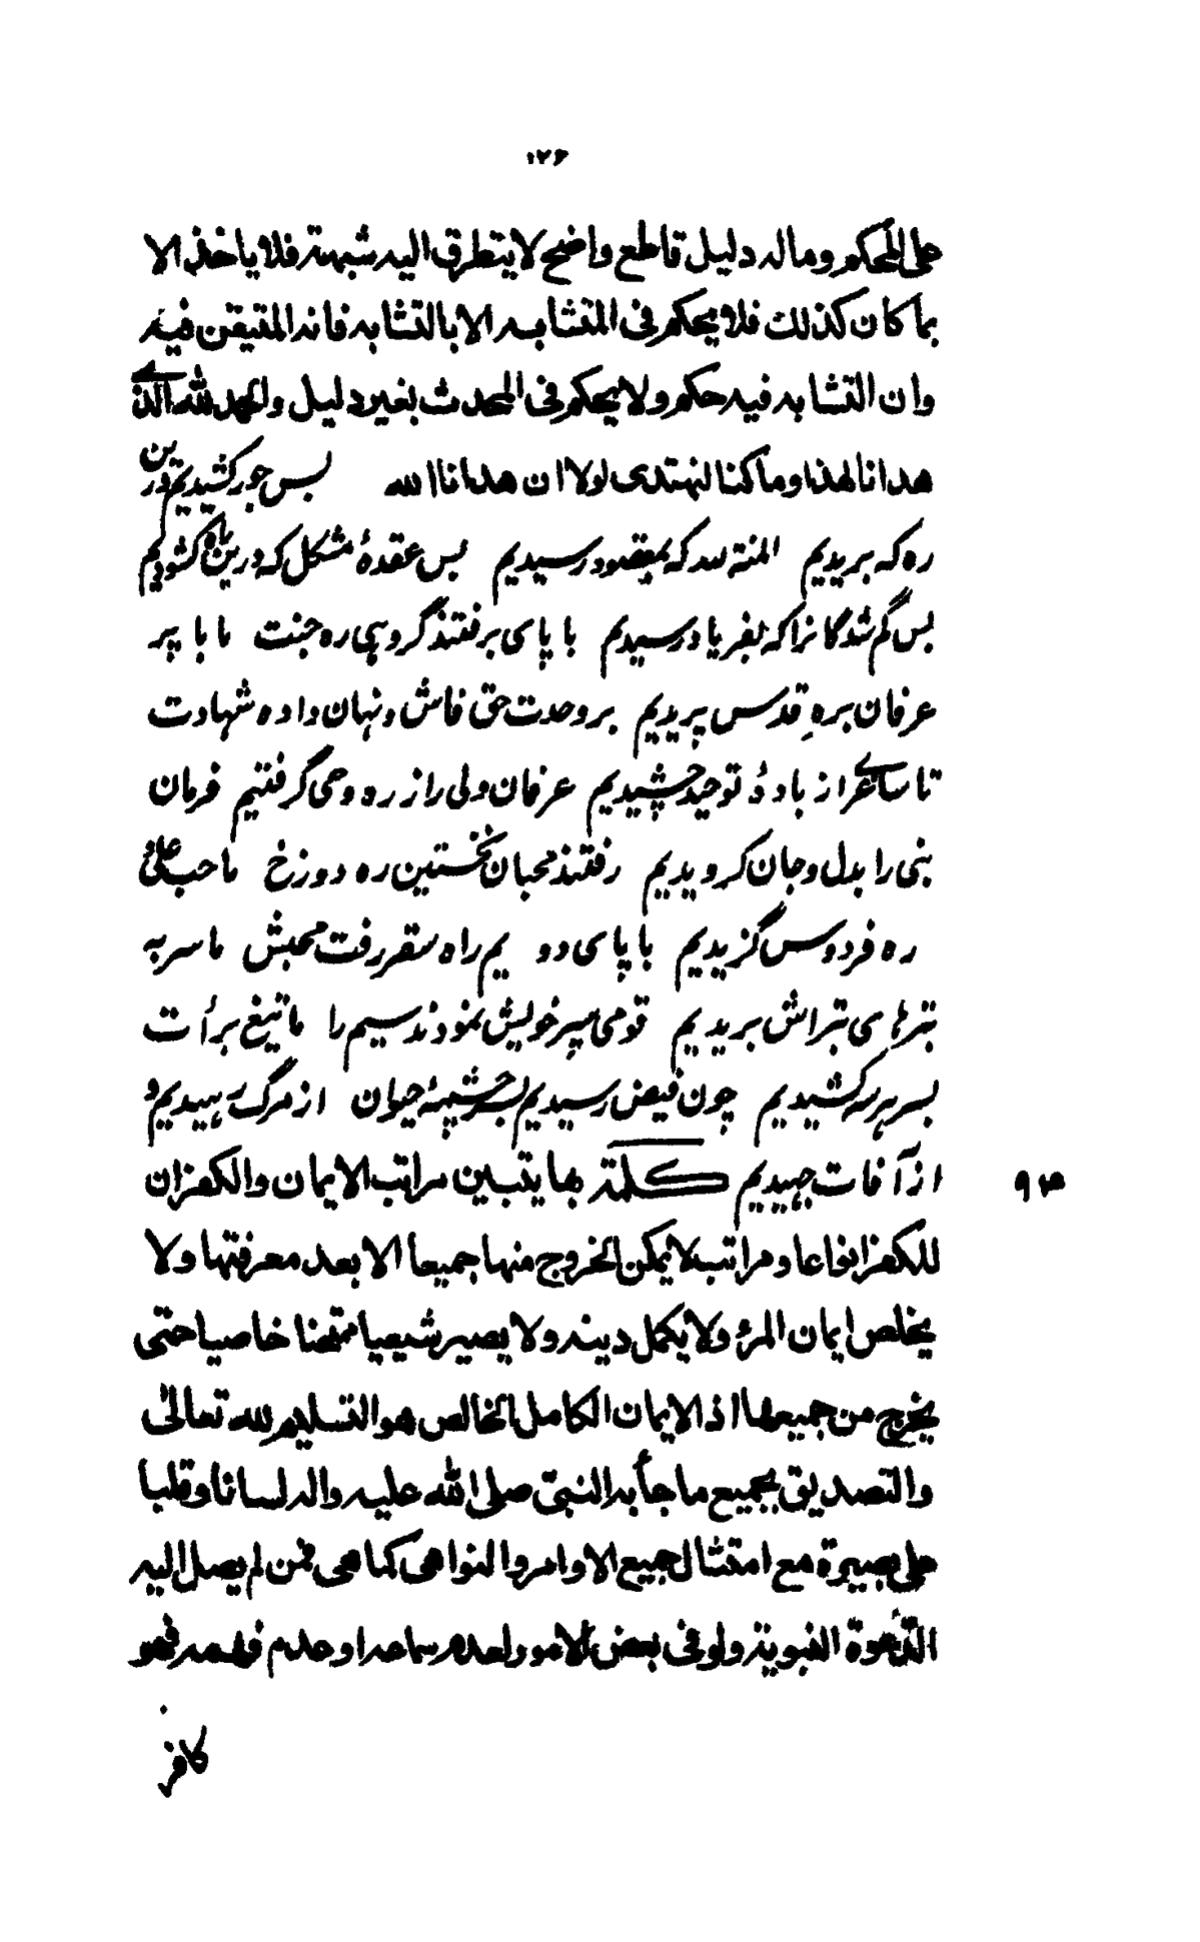 ۱۲۶
على المحكم وماله دليل قاطع واضح لا يتطرق اليه شبهة فلا ياخذ الا
بما كان كذلك فلا يحكم فى المتشابه الا بالتشابه فانه المتيقن فيه
وان التشابه فيه حكم ولا يحكم فى المحدث بغير دليل والحمد لله الذى
هدانا لهذا وما كنا لنهتدى لولا ان هدانا الله بس جور كشيديم درين
ره كه بريديم المنة لله كه بمقصود رسيديم بس عقدهٔ مشكل كه درين راه كشوديم
بس گم شدگانرا كه بفرياد رسيديم با پاى برفتند گروهى ره جنت ما با پر
عرفان بره قدس پريديم بر وحدت حق فاش ونهان داده شهادت
تا ساغرى از بادهٔ توحيد چشيديم عرفان ولى را ز ره وحى گرفتيم فرمان
نبى را بدل وجان گرويديم رفتند محبان نخستين ره دوزخ ما حب على
ره فردوس گزيديم با پاى دو يم راه سقر رفت محبش ما سر به
تبرهاى تبراش بريديم قومى سپر خويش نمودند سيم را ما تيغ برأت
بسر هر سه كشيديم چون فيض رسيديم بسر چشمهٔ حيوان از مرگ رهيديم و
از آفات جهيديم كلمة بها يتبين مراتب الايمان والكفر ان
۹۳
للكفر انواعا ومراتب لا يمكن الخروج منها جميعا الا بعد معرفتها ولا
يخلص ايمان المرء ولا يكمل دينه ولا يصير شيعيا ممتحنا خاصيا حتى
يخرج من جميعها اذ الايمان الكامل الخالص هو التسليم لله تعالى
والتصديق بجميع ما جأ به النبى صلى الله عليه واله لسانا وقلبا
على بصيرة مع امتثال جميع الاوامر والنواهى كما هى فمن لم يصل اليه
الدعوة النبوية ولو فى بعض الامور لعدم سماعه او عدم فهمه فهو
كافر